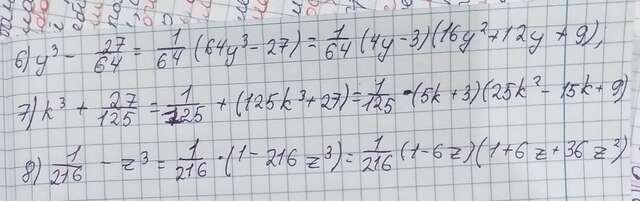 6) y³ - 27/64 = 1/64 (64y³ - 27) = 1/64 (4y - 3)(16y² + 12y + 9),
7) k³ + 27/125 = 1/125 + (125k³ + 27) = 1/125 · (5k + 3)(25k² - 15k + 9)
8) 1/216 - z³ = 1/216 · (1 - 216z³) = 1/216 (1 - 6z)(1 + 6z + 36z²)